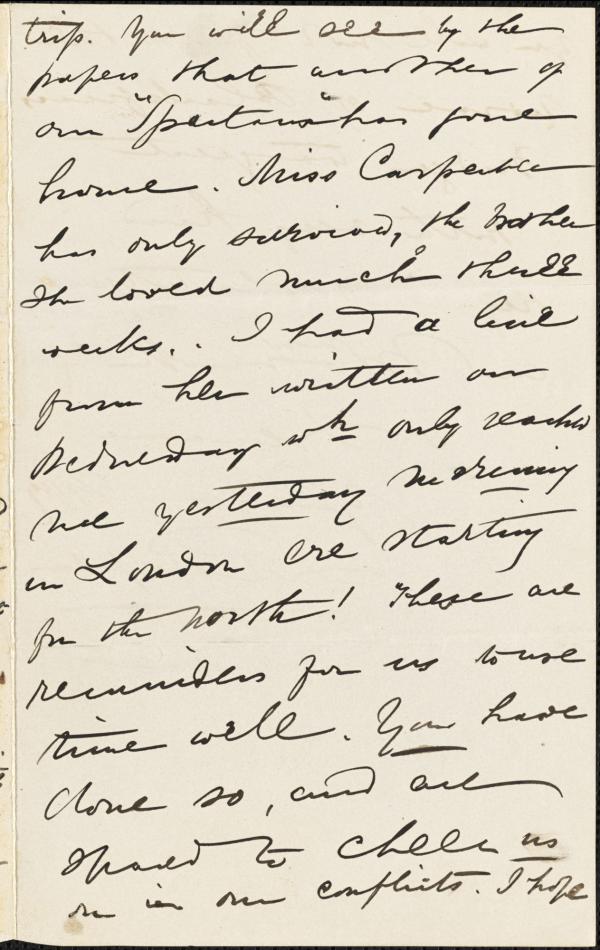 trip. You will see by the
papers that another of
our "Spartans" has gone
home. Miss Carpenter
has only survived, the brother
she loved much three
weeks.. I had a line
from her written on
Wednesday wh only reached
me yesterday morning
in London ere starting
for the north! These are
reminders for us to use
time well. You have
done so, and are
spared to cheer us
on in our conflicts. I hope